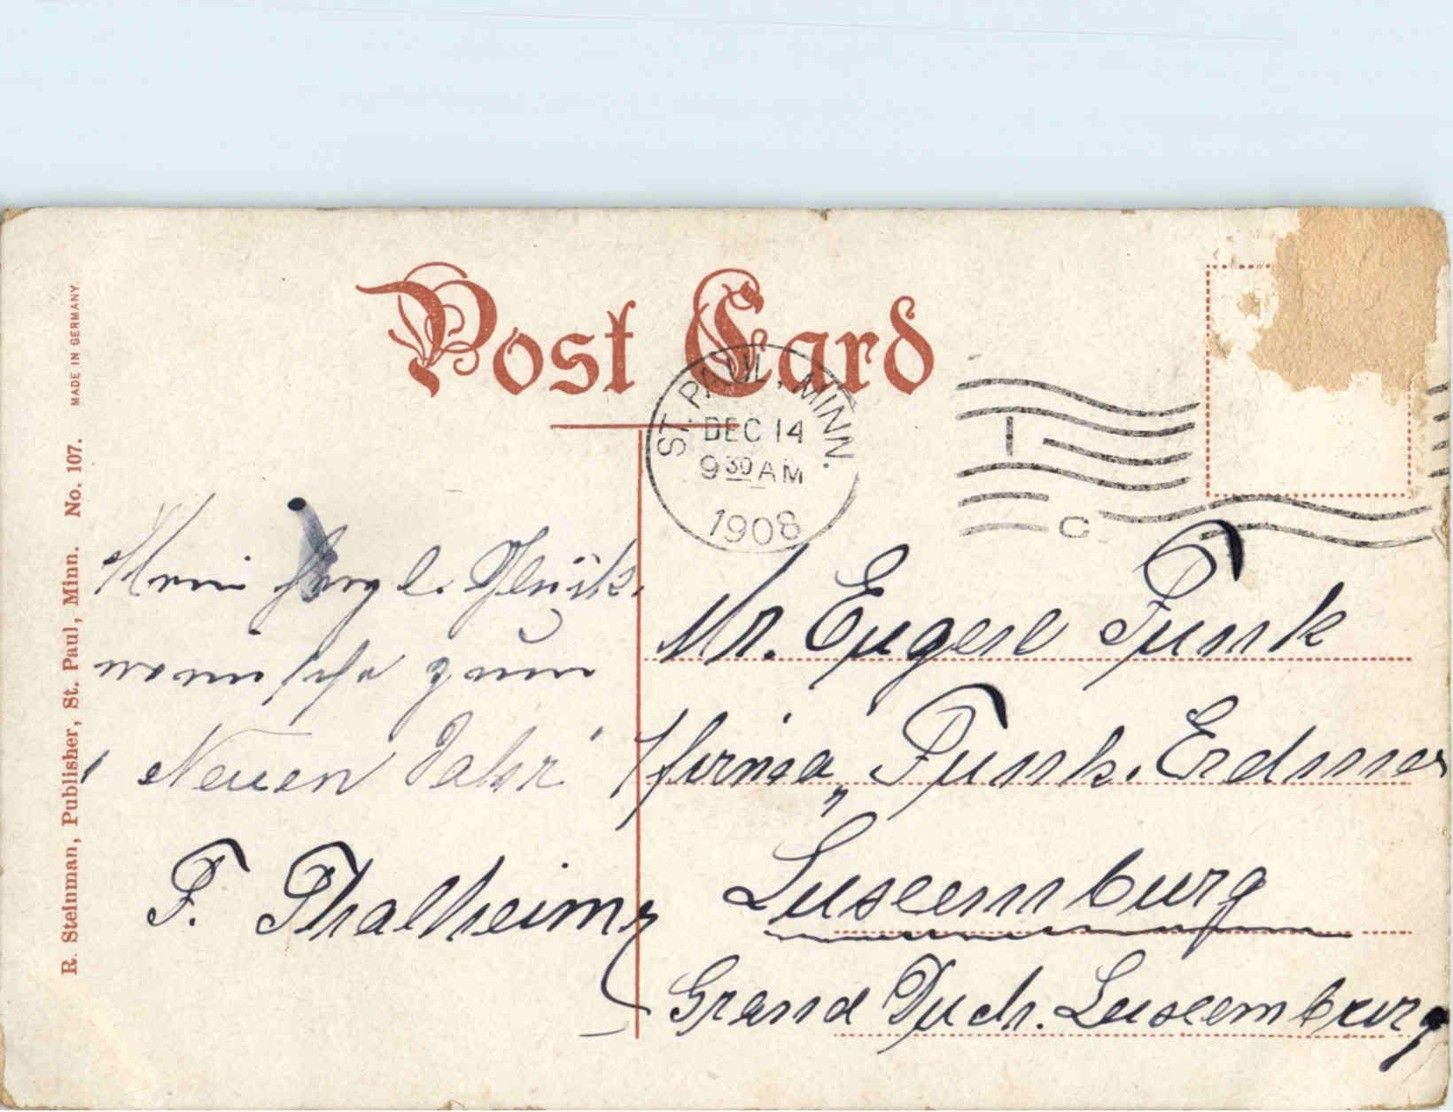 Post Card
ST. PAUL, MINN.
DEC 14
9 30 AM
1908
1
C
R. Steinman, Publisher, St. Paul, Minn. No. 107. MADE IN GERMANY.
herzl. Glück-
wünsche zum
Neuen Jahr
F. Thalheimer
Mr. Eugene Funk
Firma Funk.
Luxemburg
Grand Duch. Luxemburg